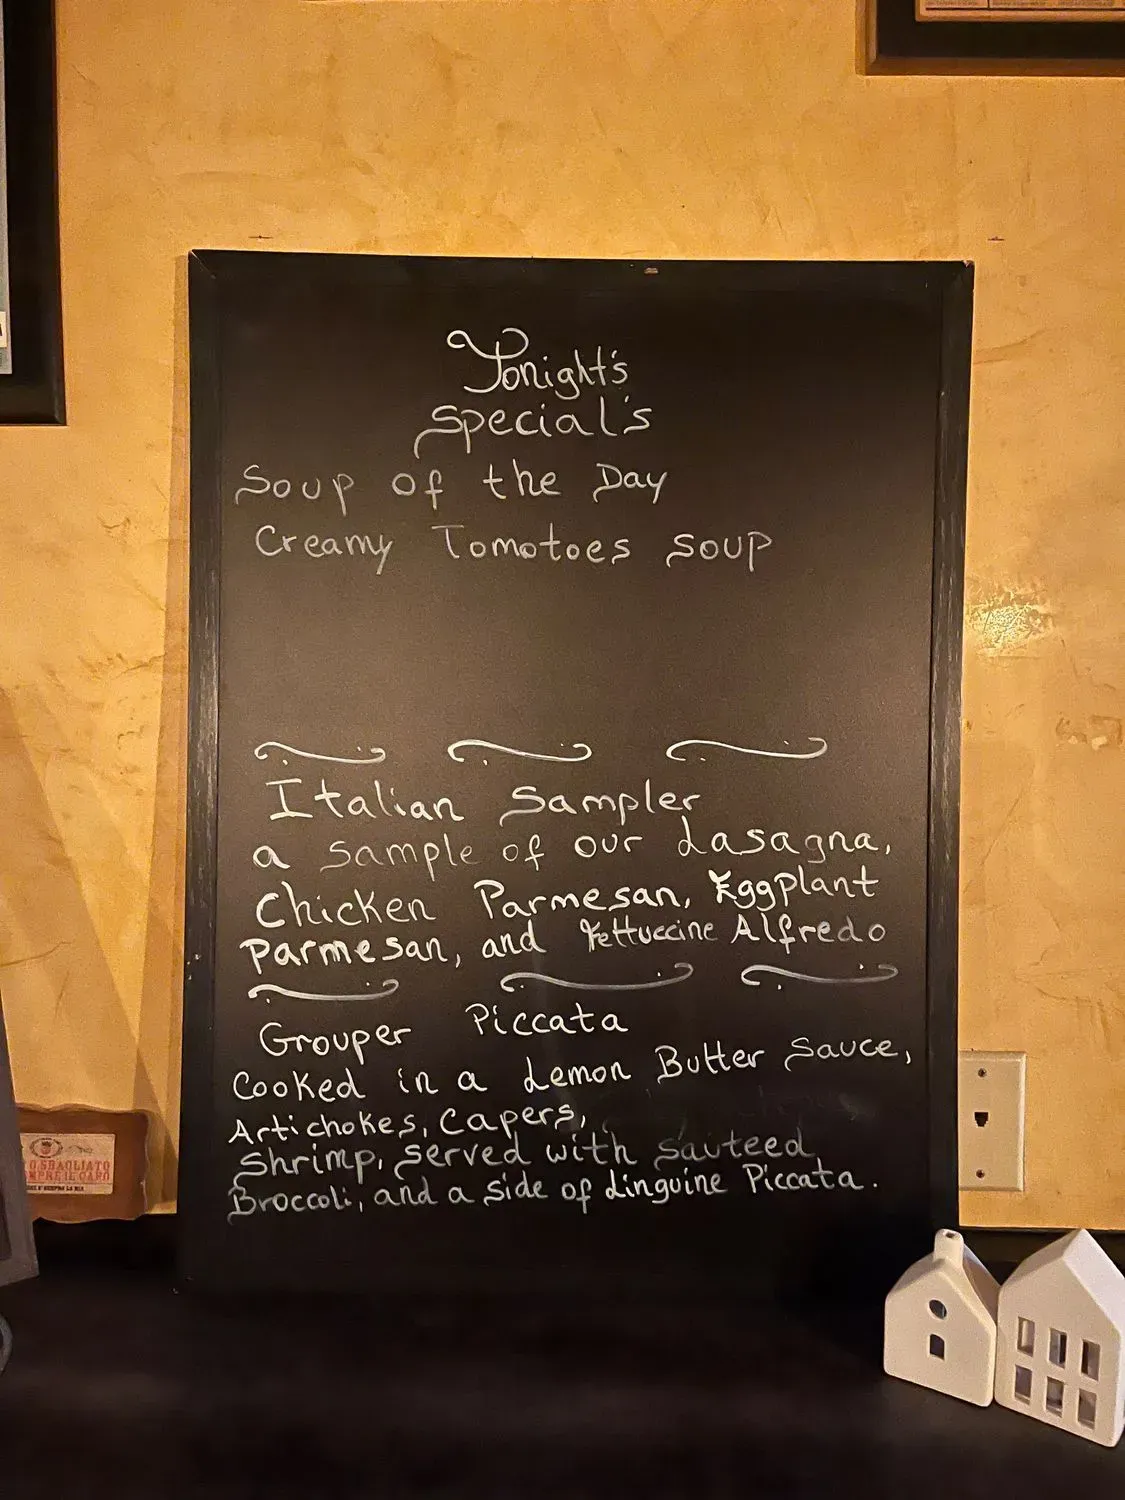 Tonight's
Special's
Soup of the Day
Creamy Tomotoes soup
Italian Sampler
a sample of our Lasagna,
Chicken Parmesan, Eggplant
Parmesan, and Fettuccine Alfredo
Grouper Piccata
Cooked in a Lemon Butter Sauce,
Artichokes, Capers,
Shrimp, Served with Sauteed
Broccoli, and a side of Linguine Piccata.